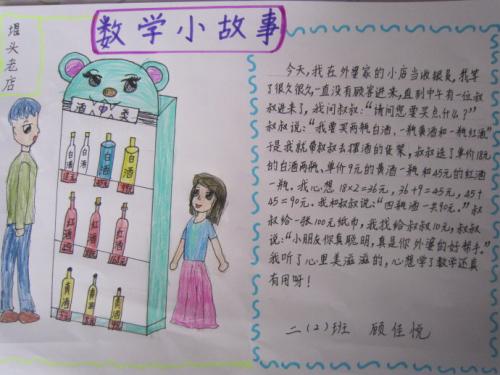 数学小故事
堰头老店
酒中卖
白酒
白酒
白酒
白酒
红酒
红酒
红酒
黄酒
黄酒
黄酒
今天,我在外婆家的小店当收银员,我等
了很久很久,一直没有顾客进来,直到中午有一位叔
叔进来了,我问叔叔:“请问您要买点什么?”
叔叔说:“我要买两瓶白酒、一瓶黄酒和一瓶红酒”
于是我就带叔叔去摆酒的货架,叔叔选了单价18元
的白酒两瓶、单价9元的黄酒一瓶和45元的红酒
一瓶。我心想18×2=36元,36+9=45元,45+
45=90元。我和叔叔说:“四瓶酒一共90元。”叔
叔给一张100元纸币,我找给叔叔10元,叔叔
说:“小朋友你真聪明,真是你外婆的好帮手。”
我听了心里美滋滋的,心想学了数学还真
有用呀!
二(2)班 顾佳悦